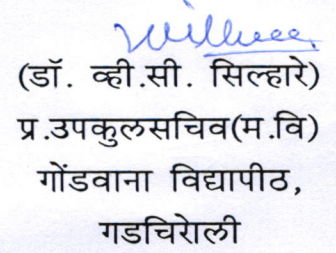 (डॉ. व्ही.सी. सिल्हारे)
प्र.उपकुलसचिव(म.वि)
गोंडवाना विद्यापीठ,
गडचिरोली